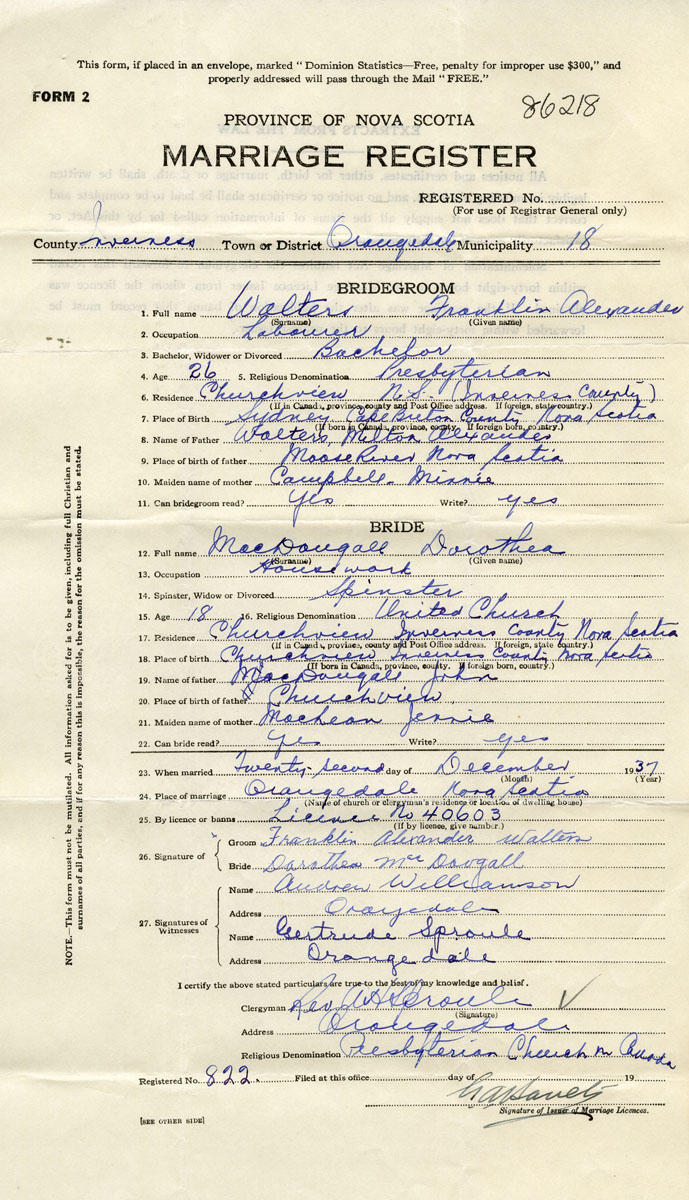 This form, if placed in an envelope, marked "Dominion Statistics—Free, penalty for improper use $300," and
properly addressed will pass through the Mail "FREE."
FORM 2
86218
PROVINCE OF NOVA SCOTIA
MARRIAGE REGISTER
REGISTERED No.
(For use of Registrar General only)
County Inverness Town or District Orangedale Municipality 18
BRIDEGROOM
1. Full name Walters Franklin Alexander
(Surname) (Given name)
2. Occupation Labourer
3. Bachelor, Widower or Divorced Bachelor
4. Age 26 5. Religious Denomination Presbyterian
6. Residence Churchview N.S. (Inverness County)
(If in Canada, province, county and Post Office address. If foreign, state country.)
7. Place of Birth Sydney Cape Breton County Nova Scotia
(If born in Canada, province, county. If foreign born, country.)
8. Name of Father Walters, Milton Alexander
9. Place of birth of father Moose River Nova Scotia
10. Maiden name of mother Campbell. Minnie
11. Can bridegroom read? Yes Write? yes
BRIDE
12. Full name MacDougall Dorothea
(Surname) (Given name)
13. Occupation Housework
14. Spinster, Widow or Divorced Spinster
15. Age 18 16. Religious Denomination United Church
17. Residence Churchview Inverness County Nova Scotia
(If in Canada, province, county and Post Office address. If foreign, state country.)
18. Place of birth Churchview Inverness County Nova Scotia
(If born in Canada, province, county. If foreign born, country.)
19. Name of father MacDougall John
20. Place of birth of father Churchview
21. Maiden name of mother MacLean Jennie
22. Can bride read? yes Write? yes
23. When married Twenty-second day of December 1937
(Month) (Year)
24. Place of marriage Orangedale Nova Scotia
(Name of church or clergyman's residence or location of dwelling house)
25. By licence or banns Licence No 40603
(If by licence, give number.)
26. Signature of
Groom Franklin Alexander Walters
Bride Dorothea McDougall
27. Signatures of Witnesses
Name Andrew Williamson
Address Orangedale
Name Gertrude Sproule
Address Orangedale
I certify the above stated particulars are true to the best of my knowledge and belief.
Clergyman Rev. W H Sproule
(Signature)
Address Orangedale
Religious Denomination Presbyterian Church in Canada
Registered No. 822. Filed at this office day of 19
Signature of Issuer of Marriage Licences.
[SEE OTHER SIDE]
NOTE.—This form must not be mutilated. All information asked for is to be given, including full Christian and
surnames of all parties, and if for any reason this is impossible, the reason for the omission must be stated.